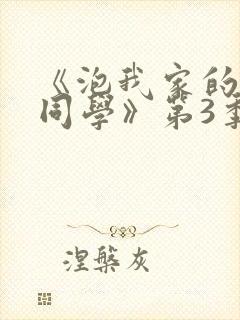 《泡我家的
同學》第3季
涅槃灰